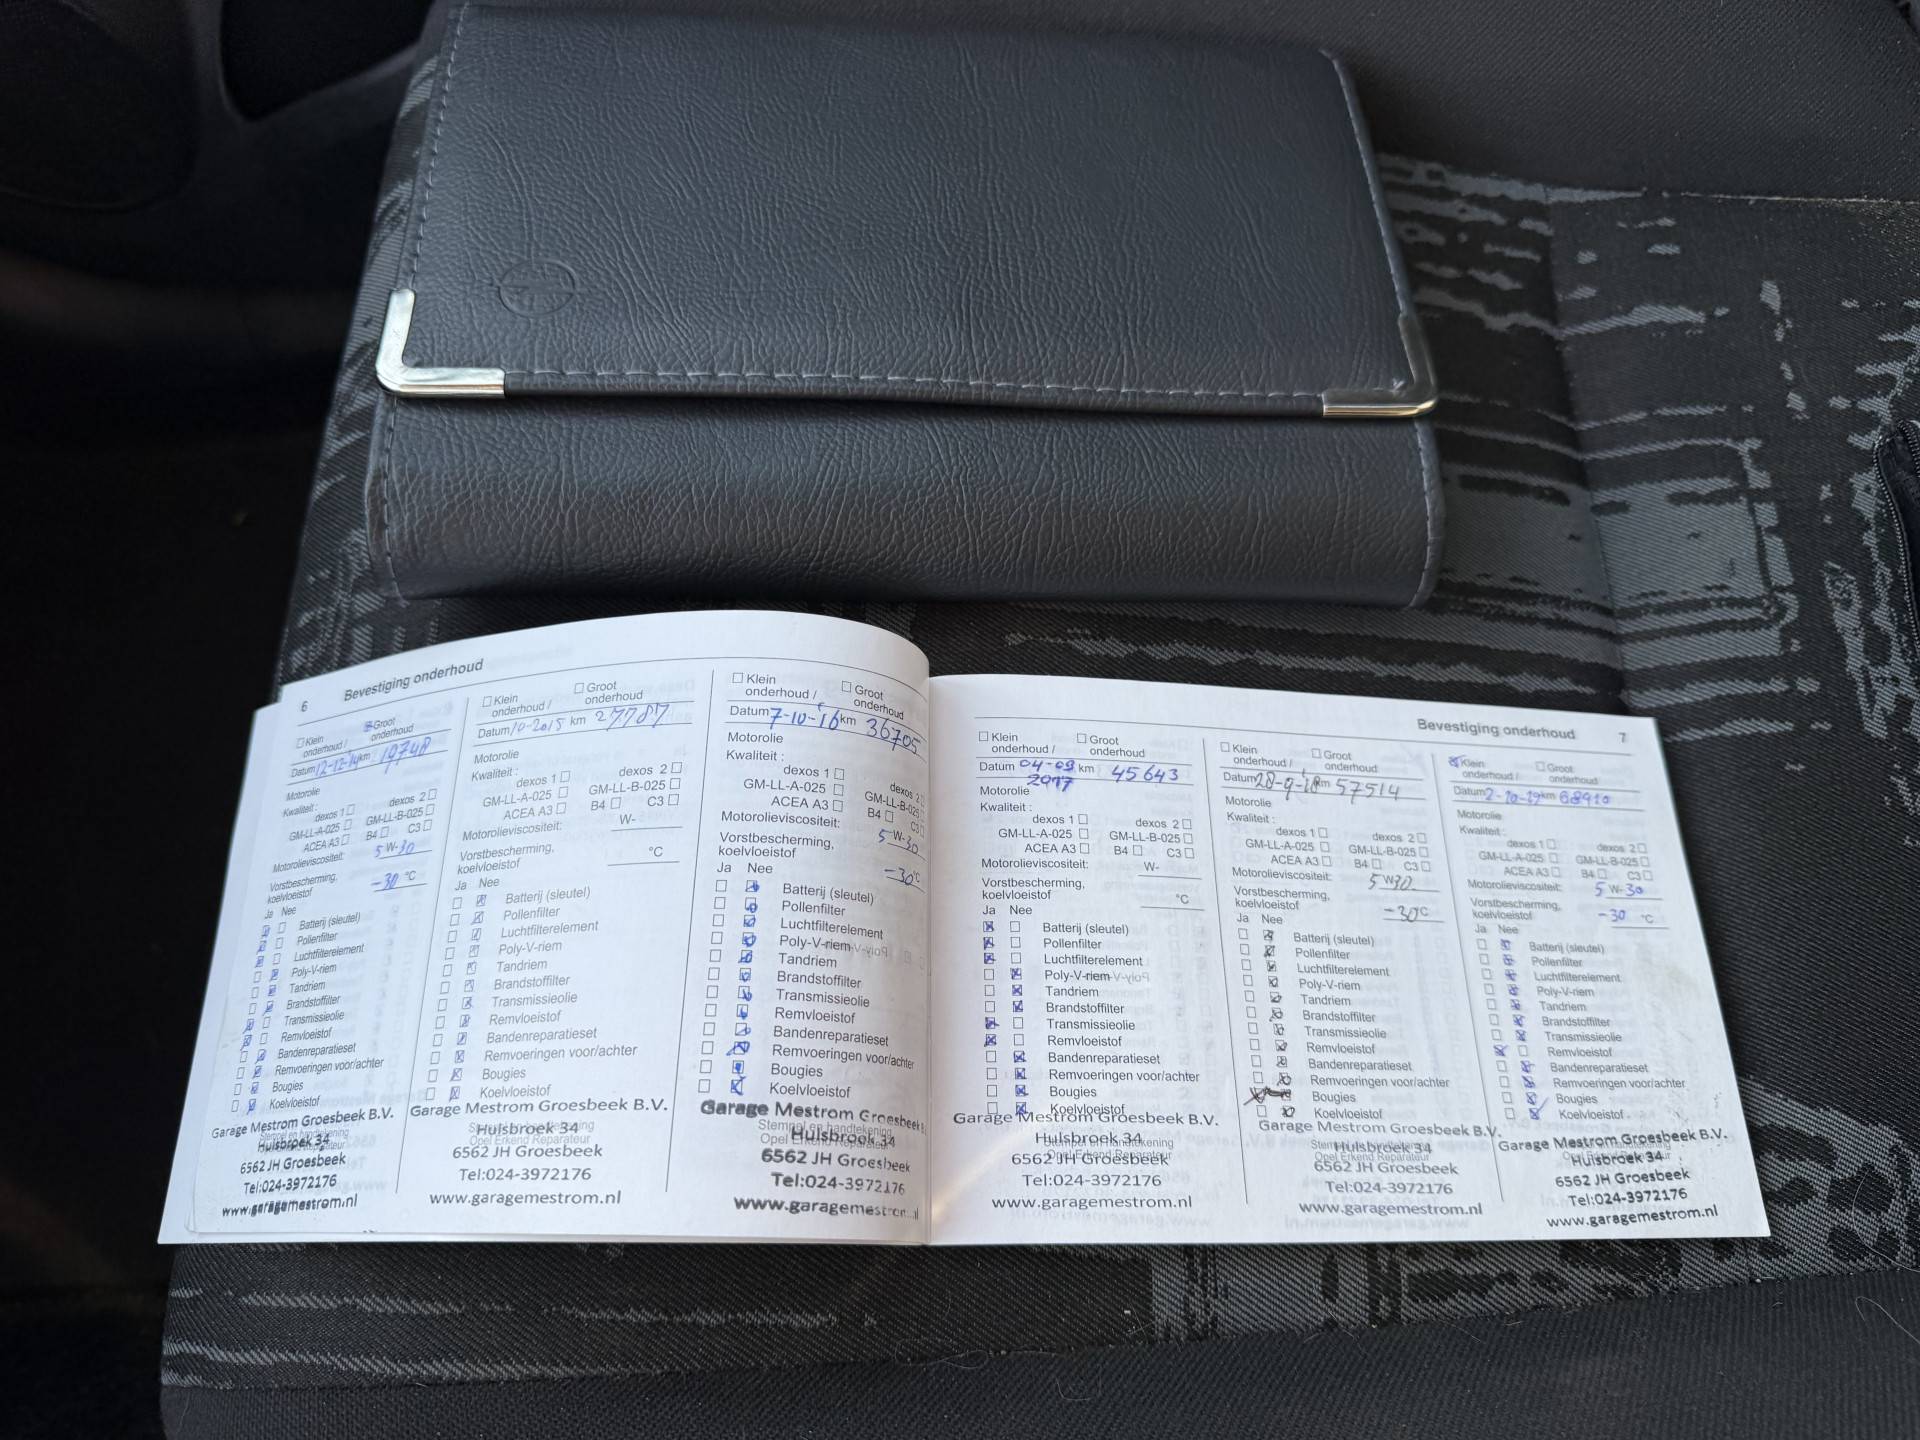 6 Bevestiging onderhoud
Klein onderhoud /
Groot onderhoud
Datum 12-12-14 km 19748
Motorolie
Kwaliteit :
dexos 1 dexos 2
GM-LL-A-025 GM-LL-B-025
ACEA A3 B4 C3
Motorolieviscositeit: 5 W-30
Vorstbescherming,
koelvloeistof -30 °C
Ja Nee
Batterij (sleutel)
Pollenfilter
Luchtfilterelement
Poly-V-riem
Tandriem
Brandstoffilter
Transmissieolie
Remvloeistof
Bandenreparatieset
Remvoeringen voor/achter
Bougies
Koelvloeistof
Garage Mestrom Groesbeek B.V.
Stempel en handtekening
Hulsbroek 34
6562 JH Groesbeek
Tel:024-3972176
www.garagemestrom.nl
Klein onderhoud /
Groot onderhoud
Datum 10-2015 km 27787
Motorolie
Kwaliteit :
dexos 1 dexos 2
GM-LL-A-025 GM-LL-B-025
ACEA A3 B4 C3
Motorolieviscositeit: W-
Vorstbescherming,
koelvloeistof °C
Ja Nee
Batterij (sleutel)
Pollenfilter
Luchtfilterelement
Poly-V-riem
Tandriem
Brandstoffilter
Transmissieolie
Remvloeistof
Bandenreparatieset
Remvoeringen voor/achter
Bougies
Koelvloeistof
Garage Mestrom Groesbeek B.V.
Hulsbroek 34
Opel Erkend Reparateur
6562 JH Groesbeek
Tel:024-3972176
www.garagemestrom.nl
Klein onderhoud /
Groot onderhoud
Datum 7-10-16 km 36705
Motorolie
Kwaliteit :
dexos 1 dexos 2
GM-LL-A-025 GM-LL-B-025
ACEA A3 B4 C3
Motorolieviscositeit: 5 W-30
Vorstbescherming,
koelvloeistof -30°C
Ja Nee
Batterij (sleutel)
Pollenfilter
Luchtfilterelement
Poly-V-riem
Tandriem
Brandstoffilter
Transmissieolie
Remvloeistof
Bandenreparatieset
Remvoeringen voor/achter
Bougies
Koelvloeistof
Garage Mestrom Groesbeek B.
Stempel en handtekening
Opel Erkend Reparateur
Hulsbroek 34
6562 JH Groesbeek
Tel:024-3972176
www.garagemestrom.nl
Bevestiging onderhoud 7
Klein onderhoud /
Groot onderhoud
Datum 04-09 2017 km 45643
Motorolie
Kwaliteit :
dexos 1 dexos 2
GM-LL-A-025 GM-LL-B-025
ACEA A3 B4 C3
Motorolieviscositeit: W-
Vorstbescherming,
koelvloeistof °C
Ja Nee
Batterij (sleutel)
Pollenfilter
Luchtfilterelement
Poly-V-riem
Tandriem
Brandstoffilter
Transmissieolie
Remvloeistof
Bandenreparatieset
Remvoeringen voor/achter
Bougies
Koelvloeistof
Garage Mestrom Groesbeek B.V.
Hulsbroek 34
Stempel en handtekening
Opel Erkend Reparateur
6562 JH Groesbeek
Tel:024-3972176
www.garagemestrom.nl
Klein onderhoud /
Groot onderhoud
Datum 28-9-18 km 57514
Motorolie
Kwaliteit :
dexos 1 dexos 2
GM-LL-A-025 GM-LL-B-025
ACEA A3 B4 C3
Motorolieviscositeit: 5 W-30
Vorstbescherming,
koelvloeistof -30°C
Ja Nee
Batterij (sleutel)
Pollenfilter
Luchtfilterelement
Poly-V-riem
Tandriem
Brandstoffilter
Transmissieolie
Remvloeistof
Bandenreparatieset
Remvoeringen voor/achter
Bougies
Koelvloeistof
Garage Mestrom Groesbeek B.V.
Stempel en handtekening
Hulsbroek 34
Opel Erkend Reparateur
6562 JH Groesbeek
Tel:024-3972176
www.garagemestrom.nl
Klein onderhoud /
Groot onderhoud
Datum 2-10-19 km 68910
Motorolie
Kwaliteit :
dexos 1 dexos 2
GM-LL-A-025 GM-LL-B-025
ACEA A3 B4 C3
Motorolieviscositeit: 5 W-30
Vorstbescherming,
koelvloeistof -30 °C
Ja Nee
Batterij (sleutel)
Pollenfilter
Luchtfilterelement
Poly-V-riem
Tandriem
Brandstoffilter
Transmissieolie
Remvloeistof
Bandenreparatieset
Remvoeringen voor/achter
Bougies
Koelvloeistof
Garage Mestrom Groesbeek B.V.
Opel Erkend Reparateur
Hulsbroek 34
6562 JH Groesbeek
Tel:024-3972176
www.garagemestrom.nl